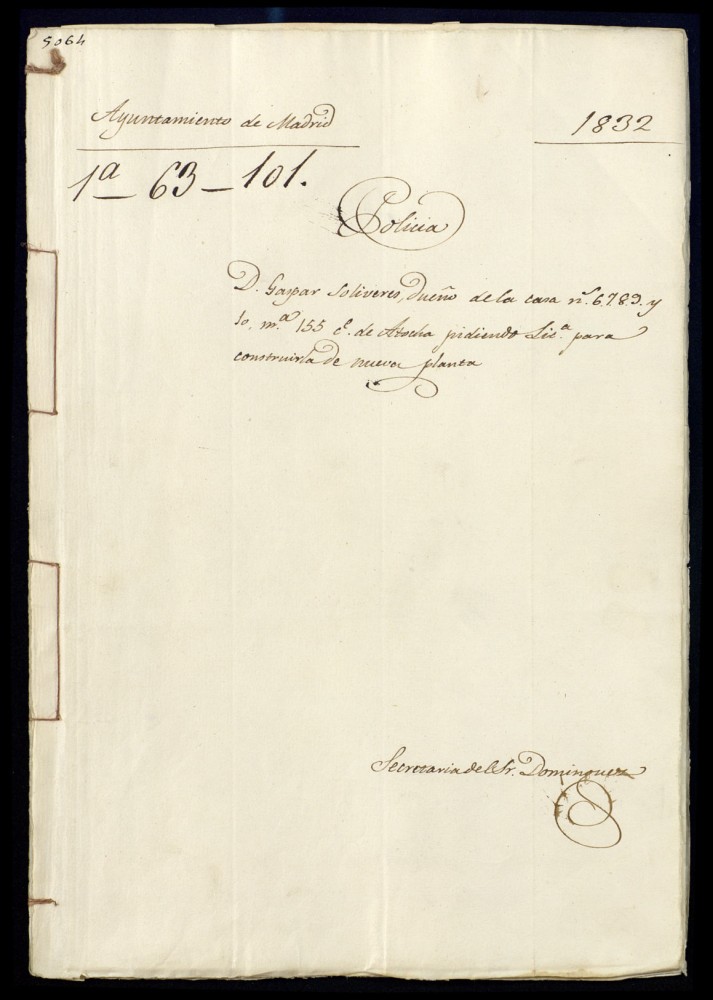 5064
Ayuntamiento de Madrid
1832
1ª - 63 - 101.
Policia
D. Gaspar Soliveres, dueño de la casa nº. 6.7.8.9. y
10. mª. 155 cª. de Atocha pidiendo Licª. para
construirla de nueva planta
Secretaria del Sr. Dominguez